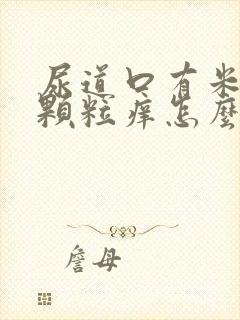 尿道口有米
颗粒痒怎麽
詹母